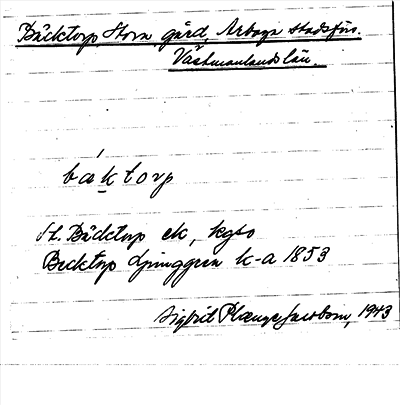 Bäcktorp Stora, gård, Arboga stadsförs.
Västmanlands län.
baktorp
St. Bäcktorp ek, kgso
Becktorp Ljunggren k-a 1853
Sigfrid Plænge Jacobson, 1943